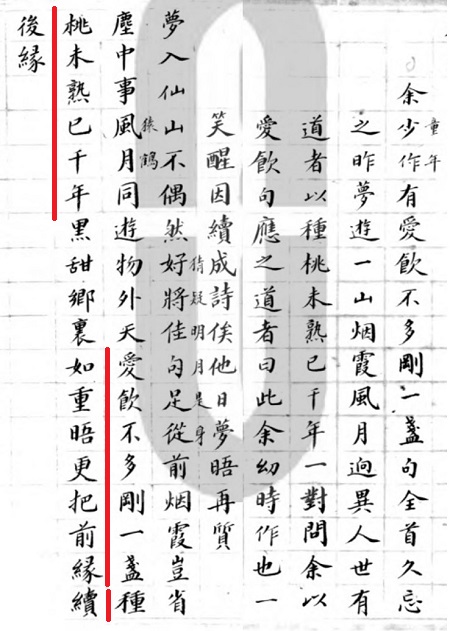 童年
余少作有愛飲不多剛一盞句全首久忘
之昨夢遊一山烟霞風月迥異人世有
道者以種桃未熟已千年一對問余以
愛飲句應之道者曰此余幼時作也一
笑醒因續成詩俟他日夢晤再質
猜疑明月是身
夢入仙山不偶然好將佳句足從前烟霞豈省
猿鶴
塵中事風月同遊物外天愛飲不多剛一盞種
桃未熟已千年黑甜鄉裏如重晤更把前緣續
後緣